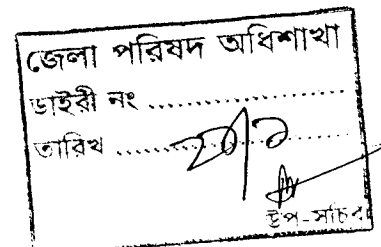 জেলা পরিষদ অধিশাখা
ডাইরী নং ..................
তারিখ ..................
উপ-সচিব